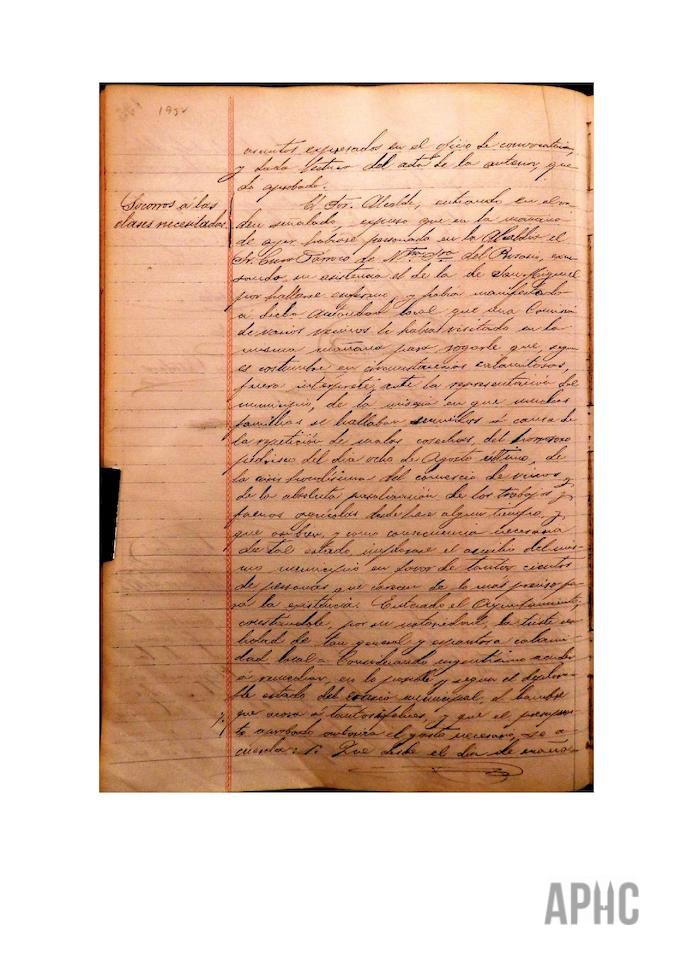 1922
asuntos expresados en el oficio de convocatoria,
y dada lectura del acta de la anterior, que
da aprobado.
Socorros á las
clases necesitadas
El Sr. Alcalde, entrando en el or
den señalado, expuso que en la mañana
de ayer habiase personado en la Alcaldia el
Sr. Cura Párroco de Ntra. Sra. del Rosario, excu
sando su asistencia el de la de San Miguel
por hallarse enfermo, y habia manifestado
a dicha Autoridad local que una Comisión
de varios vecinos le habia visitado en la
misma mañana para rogarle que, segun
es costumbre en circunstancias calamitosas,
fuera intérprete, ante la representación del
municipio, de la miseria en que muchas
familias se hallaban sumidas á causa de
la repetición de malas cosechas, del horroroso
pedrisco del dia ocho de Agosto último, de
la crisis hondisima del comercio de vinos y
de la absoluta paralización de los trabajos y
faenas agrícolas desde hace algun tiempo, y
que como consecuencia necesaria
de tal estado, implorase el auxilio del mis-
mo municipio en favor de tantos cientos
de personas que carecen de lo más preciso pa
ra la existencia. Enterado el Ayuntamiento,
constándole, por su notoriedad, la triste rea
lidad de tan general y espantosa calami-
dad local = Considerando urgentísimo acudir
á remediar, en lo posible y segun el deplora-
ble estado del erario municipal, el hambre
que acosa á tantos infelices, y que el presupues-
to aprobado autoriza el gasto necesario, se a
cuerda: 1º Que desde el dia de maña-
APHC